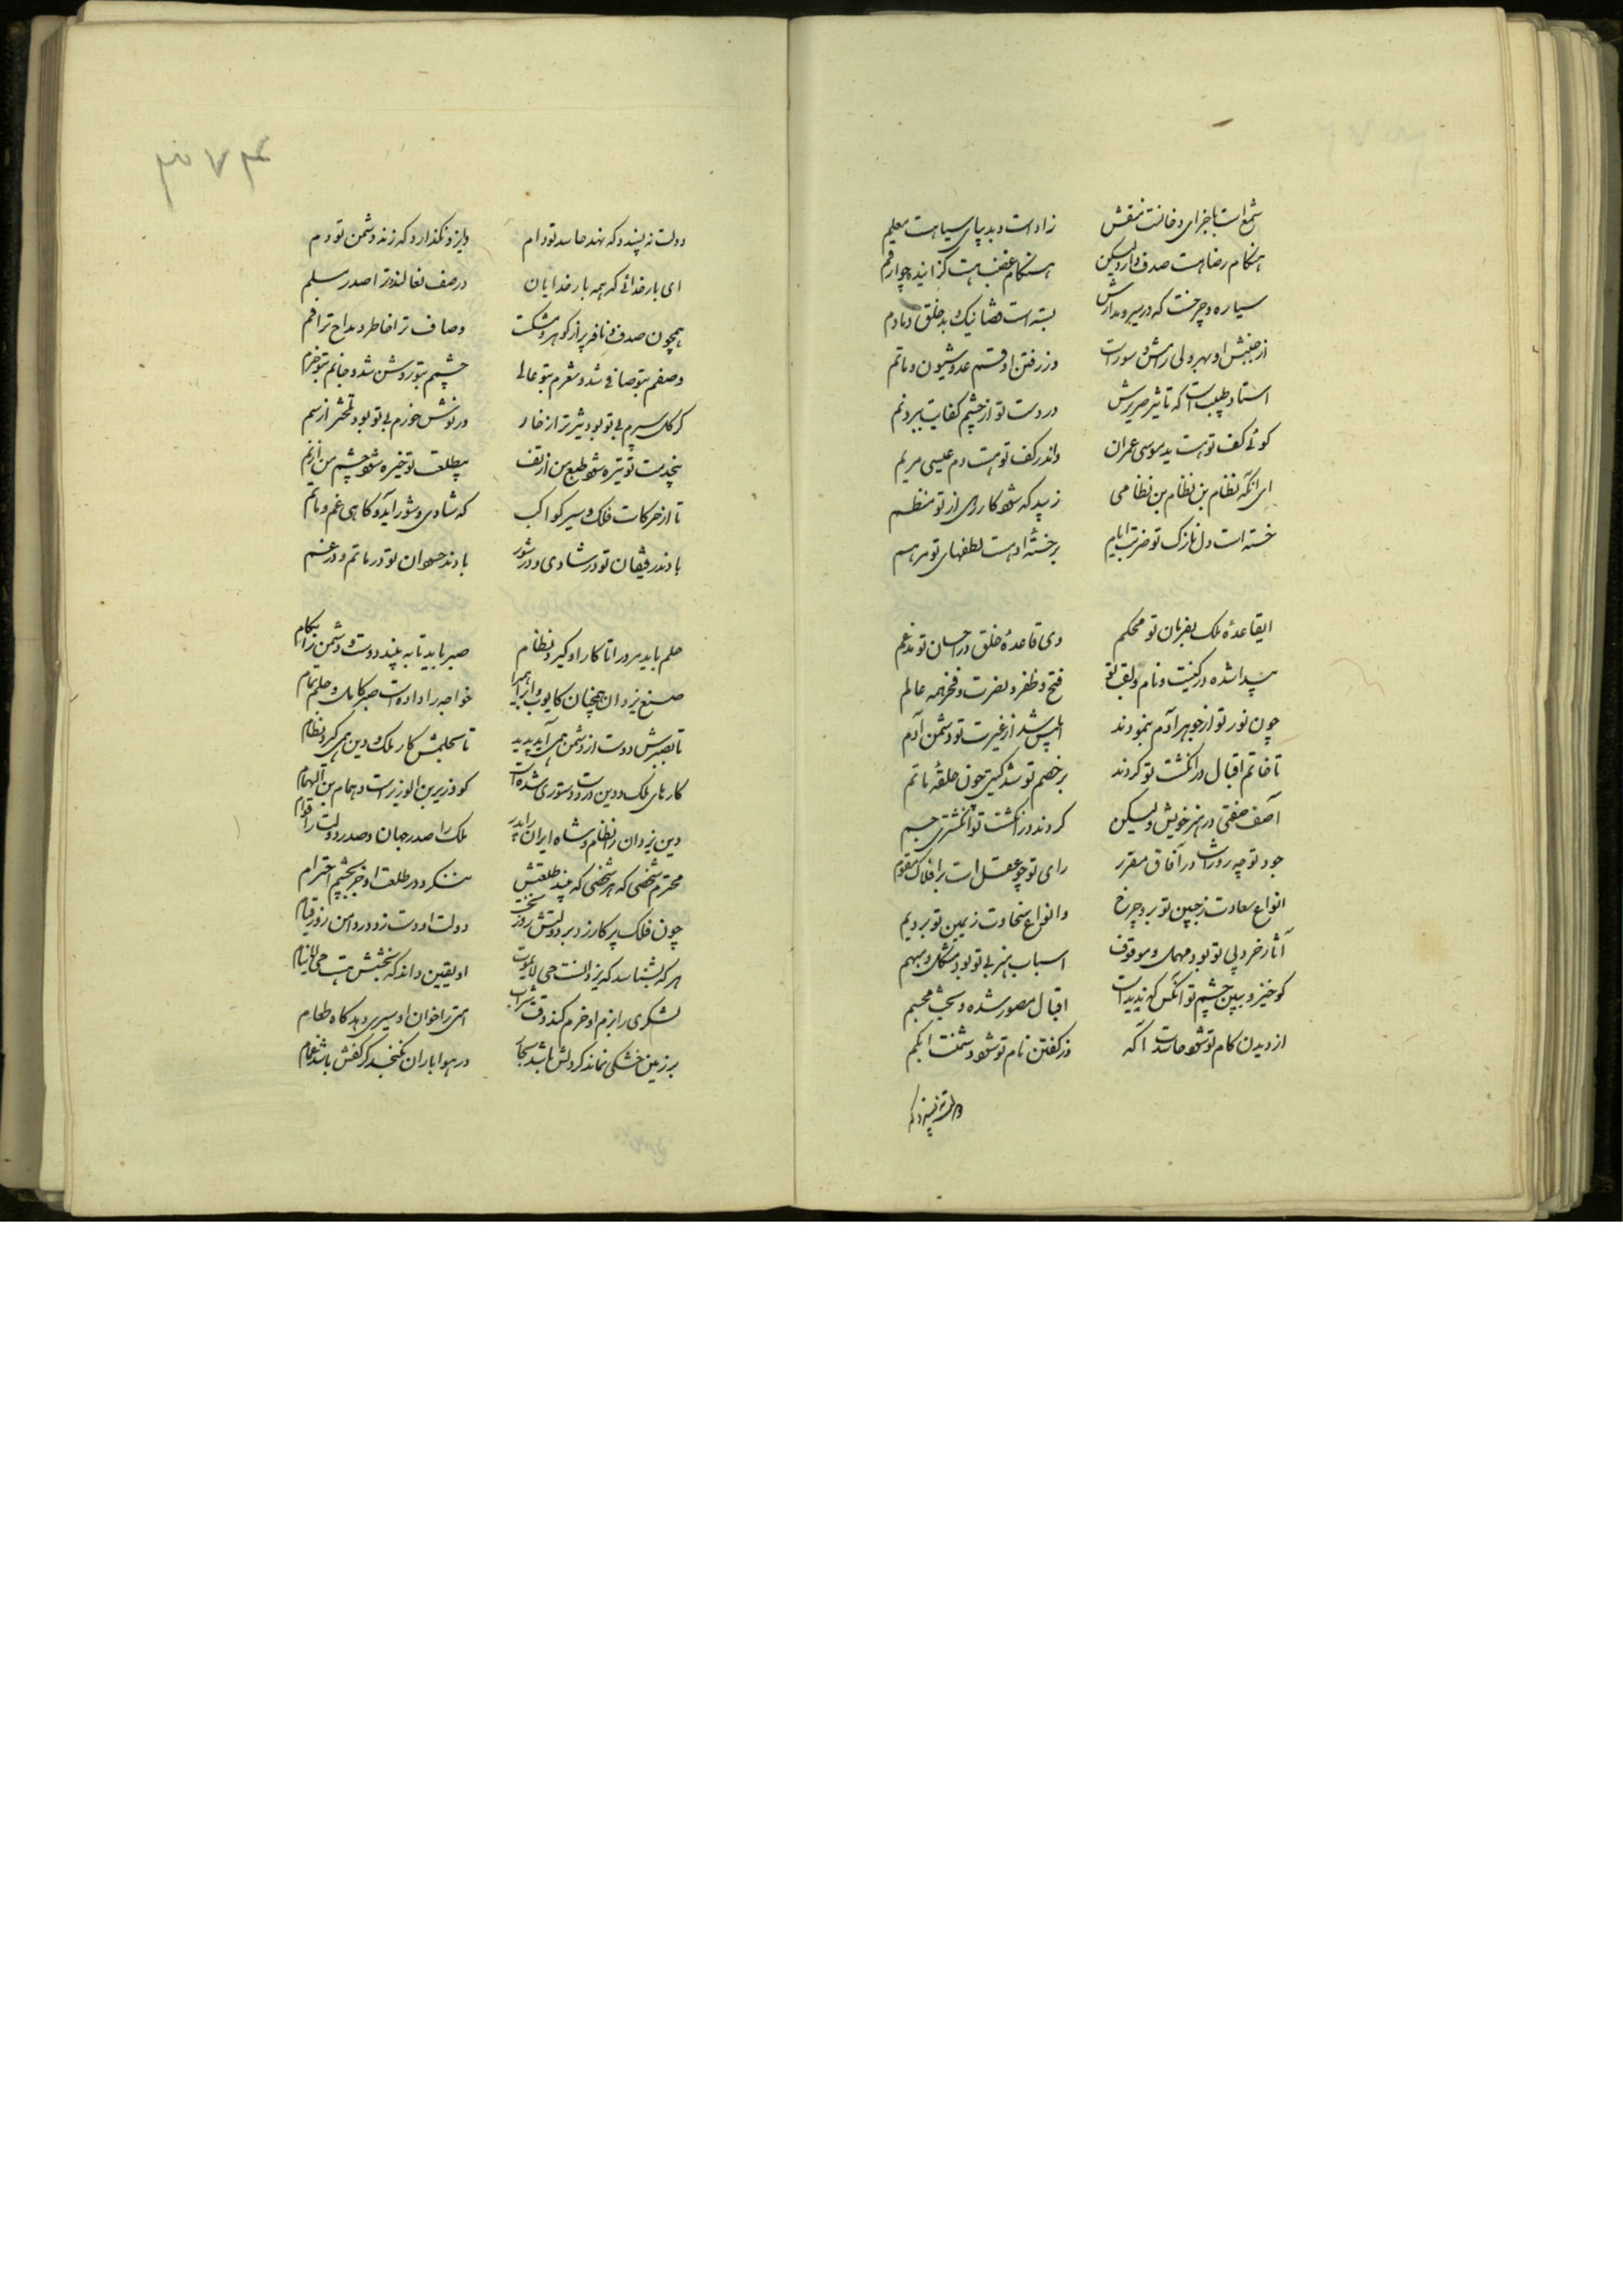 شمع است باجزای دخانت نمقش زاده است و بد پیای سیاست معلم
هنگام رضا هست صدف وار ولیکن هنگام غضب هست گزاینده چو ارقم
سیاره و چرخست که در سیر و مدارش بسته است قضا نیک و بد خلق دمادم
از جنبش او بهر ولی رامش و سورات وز رفتن او قسم عدو شیون و ماتم
استاد طبیب است که تاثیر صریرش در دست تو از چشم کفایت ببرد نم
گوئی کف تو هست ید موسی عمران واندر کف تو هست دم عیسی مریم
ای آنکه نظام بن نظام بن نظامی زیبد که شود کار وی از تو منظم
خسته است دل نازک تو ضربت ایام بر خسته او هست لطفهای تو مرهم
ایقاعدهٔ ملک بفرمان تو محکم وی قاعدهٔ خلق در احسان تو مدغم
پیدا شده در کنیت و نام و لقب تو فتح و ظفر و نصرت و فخر همه عالم
چون نور تو از جوهر آدم بنمودند ابلیس شد از غیرت تو دشمن آدم
تا خاتم اقبال در انگشت تو کردند بر خصم تو شد گیتی چون حلقهٔ ماتم
آصف صفتی در هنر خویش ولیکن کردند در انگشت تو انگشتری جم
جود تو چه روزاست در آفاق مقرر رای تو چو عقل است بر افلاک مقوم
انواع سعادت ز جبین تو برد چرخ وانواع سخاوت ز یمین تو برد یم
آثار خرد بی تو بود مهمل و موقوف اسباب هنر بی تو بود مشکل و مبهم
گو خیز و ببین چشم تو آنکس که ندیداست اقبال مصور شده و بخت مجسم
از دیدن کام تو شود حاسدت اکمه وز گفتن نام تو شود دشمنت ابکم
دولت نه پسندد که
۳۷۴
دولت نه پسندد که نهد حاسد تو دام وایزد نگذارد که زند دشمن تو دم
ای بار خدائی که همه بار خدایان در صف نعالند و ترا صدر مسلم
همچون صدف و نافه پر از گوهر و مشکست وصاف ترا خاطر و مداح ترا فم
وصفم بتو صافی شد و شعرم بتو عالی چشمم بتو روشن شد و جانم بتو خرم
گر گل سپرم بی تو بود تیزتر از خار ور نوش خورم بی تو بود تلختر از سم
بیخدمت تو تیره شود طبع من از تف بیطلعت تو خیره شود چشم من از نم
تا از حرکات فلک و سیر کواکب گه شادی و شور آید و گاهی غم و ماتم
بادند رفیقان تو در شادی و در شور بادند حسودان تو در ماتم و در غم
حلم باید مرد را تا کار او گیرد نظام صبر باید تا به بیند دوست و دشمن را بکام
صنع یزدان همچنان کایوب و ابراهیم را خواجه را داده است صبر کامل و حلم تمام
تا بصبرش دوست از دشمن همی آید پدید تا بحلمش کار ملک و دین همی گیرد نظام
کارهای ملک و دین در دست دستوری شده است کو وزیر بن الوزیر است و همام بن الهمام
دین یزدان را نظام و شاه ایران را پدر ملک را صدر جهان و صدر دولت را قوام
محترم شخصی که هر شخصی که بیند طلعتش ننگرد در طلعت او جز بچشم احترام
چون فلک پرگار زد بر دولتش روز نخست دولت او دست زد در دامن روز قیام
هر که بشناسد که یزدانست حی لایموت او یقین داند که بختش هست حی لاینام
لشکری را بزم او خرم کند وقت شراب امتی را خوان او سیری دهد گاه طعام
بر زمین خشکی نماند گر دلش باشد سحاب در هوا باران نگنجد گر کفش باشد غمام